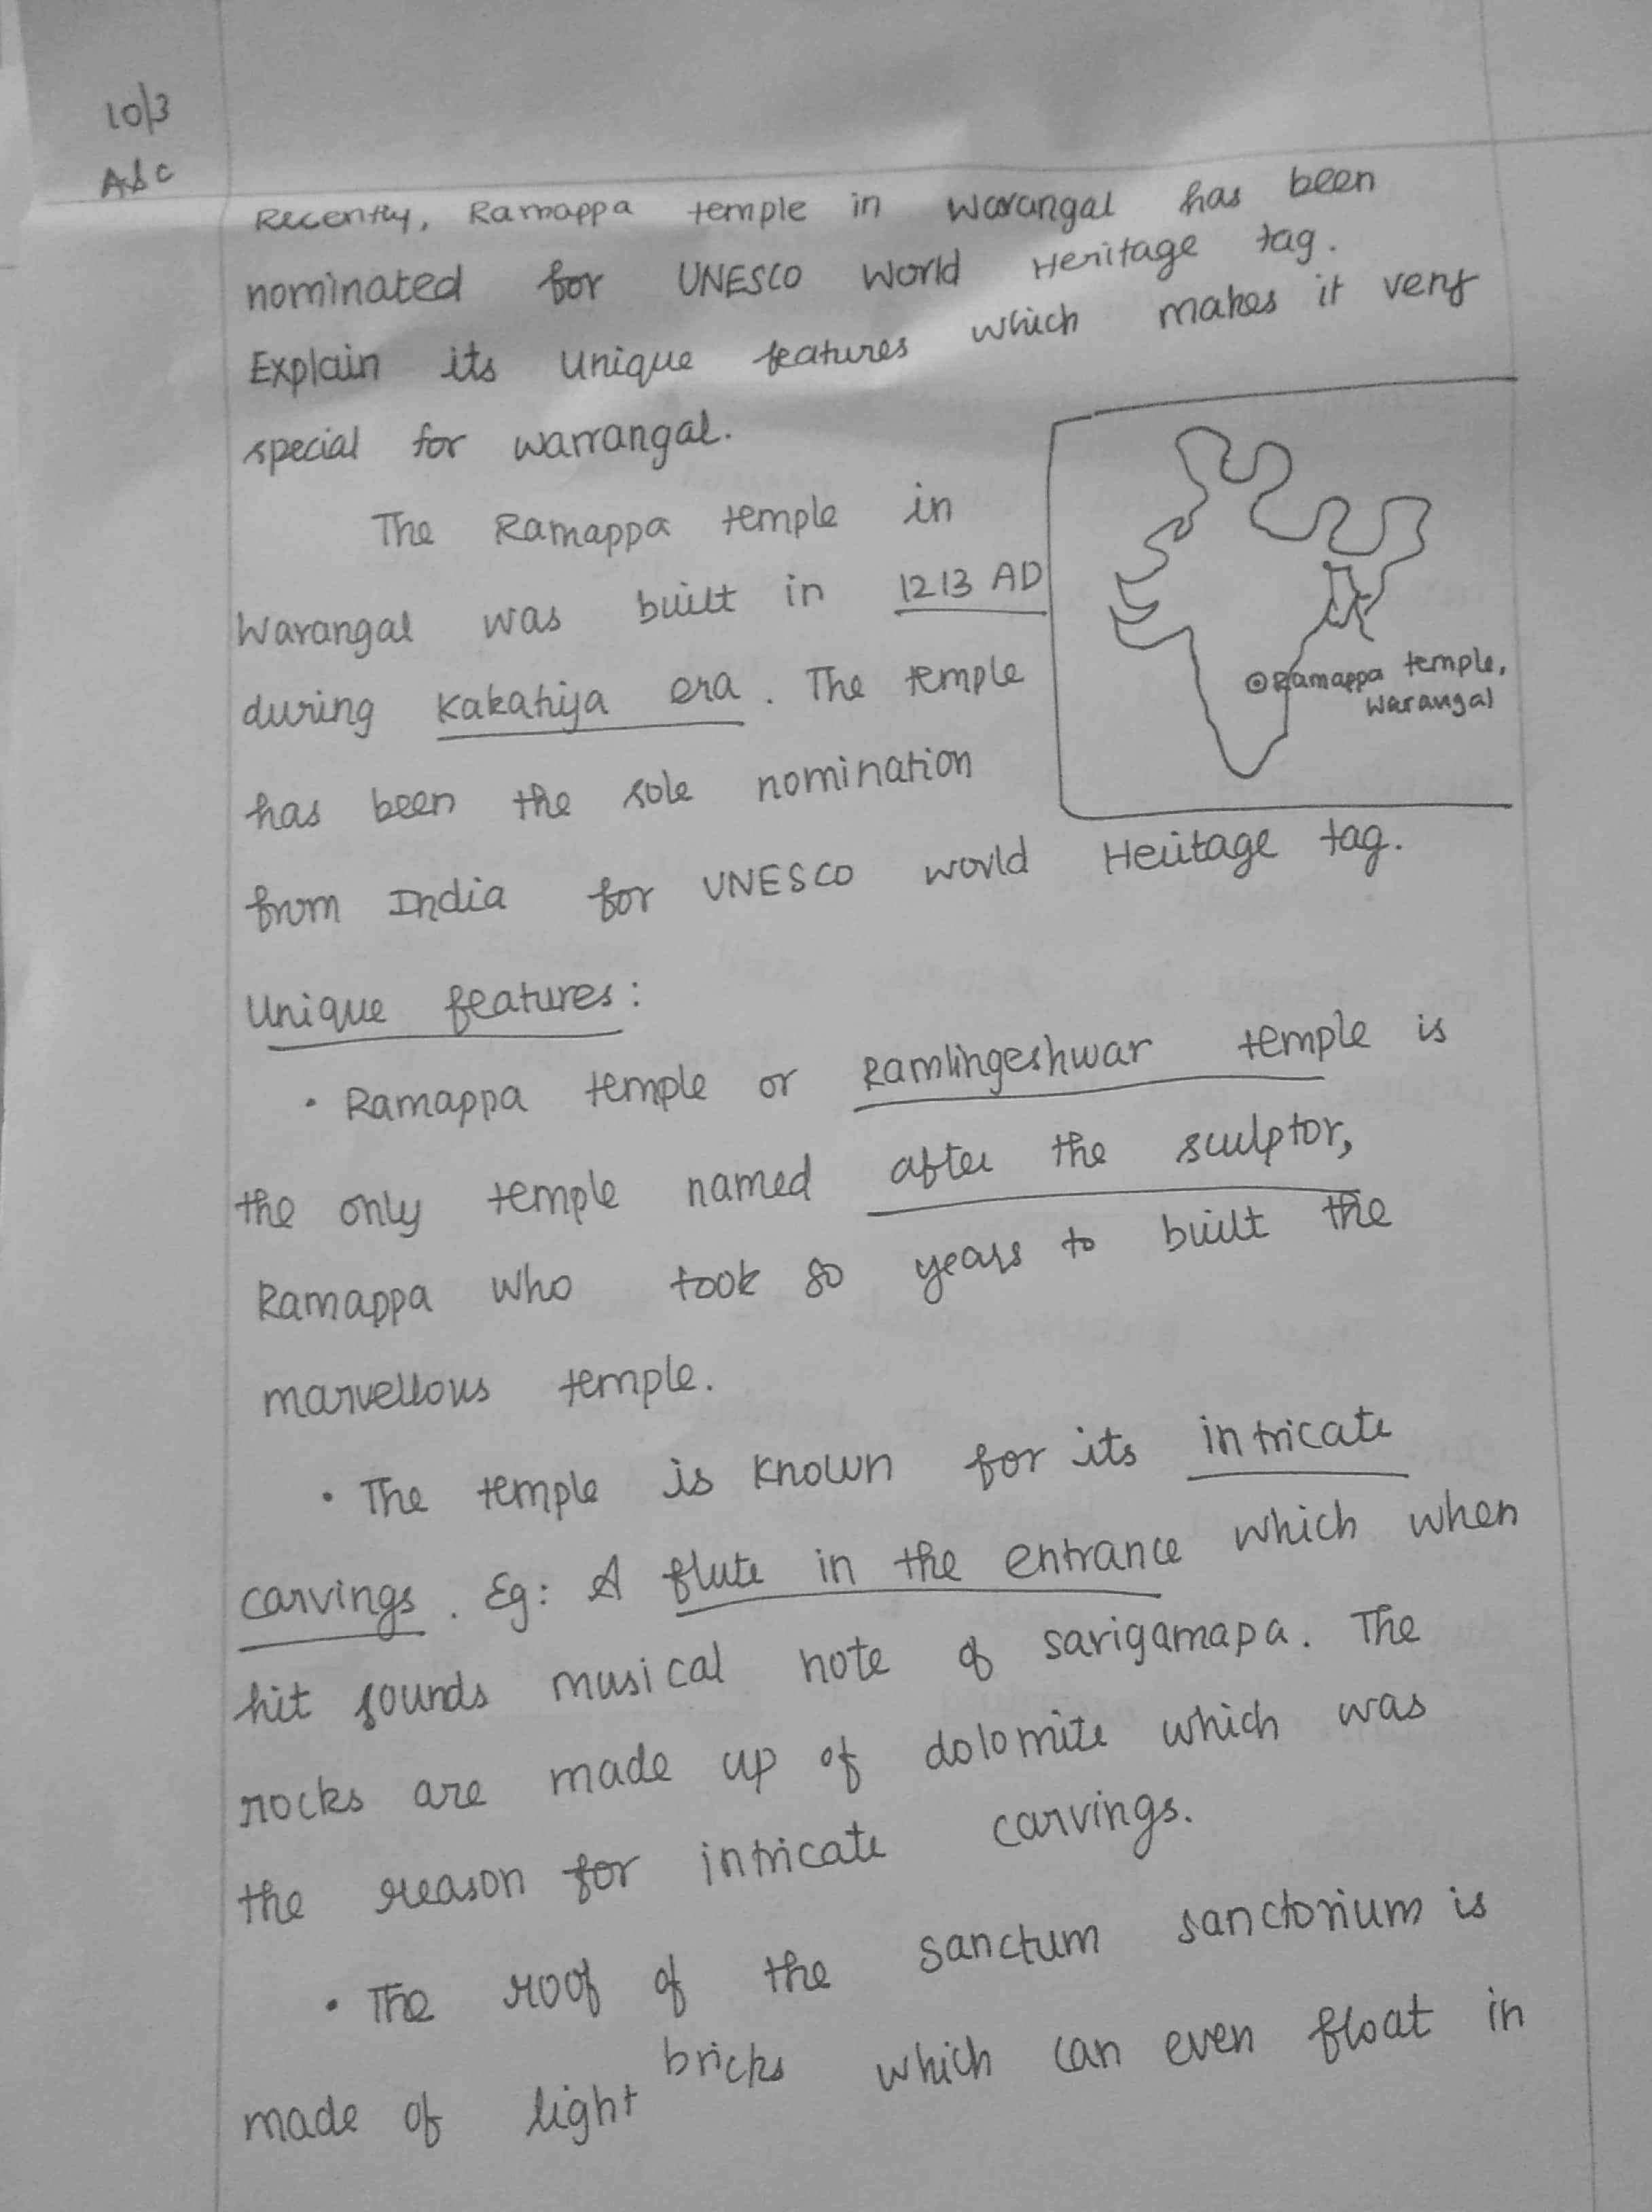 10/3
A&C
Recently, Ramappa temple in Warangal has been
nominated for UNESCO World Heritage tag.
Explain its unique features which makes it very
special for warrangal.
The Ramappa temple in
Warangal was built in 1213 AD
during Kakatiya era. The temple
has been the sole nomination
from India for UNESCO world Heritage tag.
Ramappa temple,
Warangal
Unique features:
• Ramappa temple or Ramlingeshwar temple is
the only temple named after the sculptor,
Ramappa who took 80 years to built the
marvellous temple.
• The temple is known for its intricate
carvings. Eg: A flute in the entrance which when
hit sounds musical note of sarigamapa. The
rocks are made up of dolomite which was
the reason for intricate carvings.
• The roof of the sanctum sanctorium is
made of light bricks which can even float in